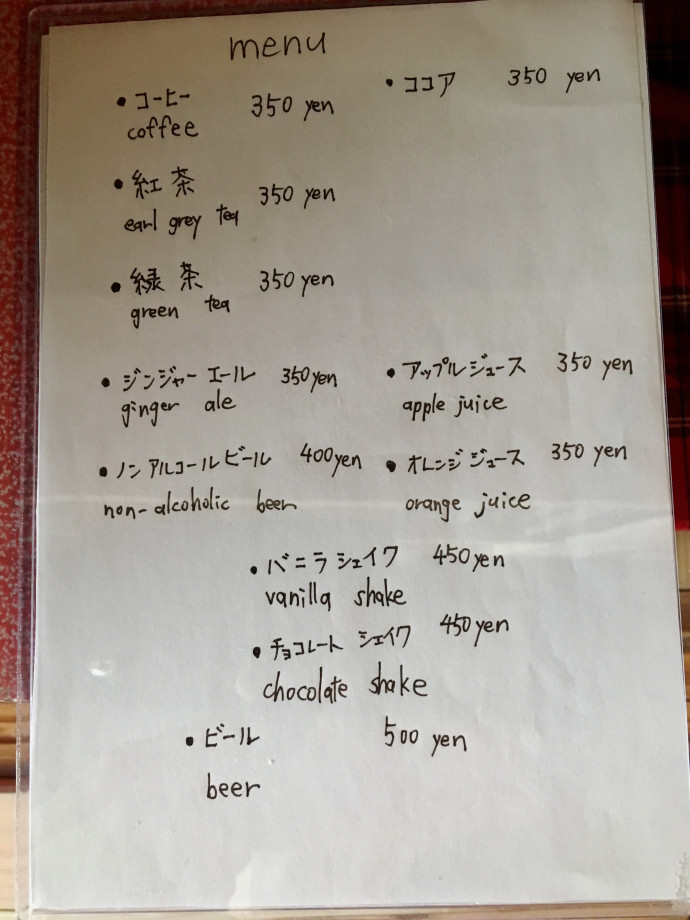 menu
• コーヒー 350 yen
coffee
• ココア 350 yen
• 紅茶 350 yen
earl grey tea
• 緑茶 350 yen
green tea
• ジンジャーエール 350 yen
ginger ale
• アップルジュース 350 yen
apple juice
• ノンアルコールビール 400 yen
non-alcoholic beer
• オレンジジュース 350 yen
orange juice
• バニラシェイク 450 yen
vanilla shake
• チョコレートシェイク 450 yen
chocolate shake
• ビール 500 yen
beer